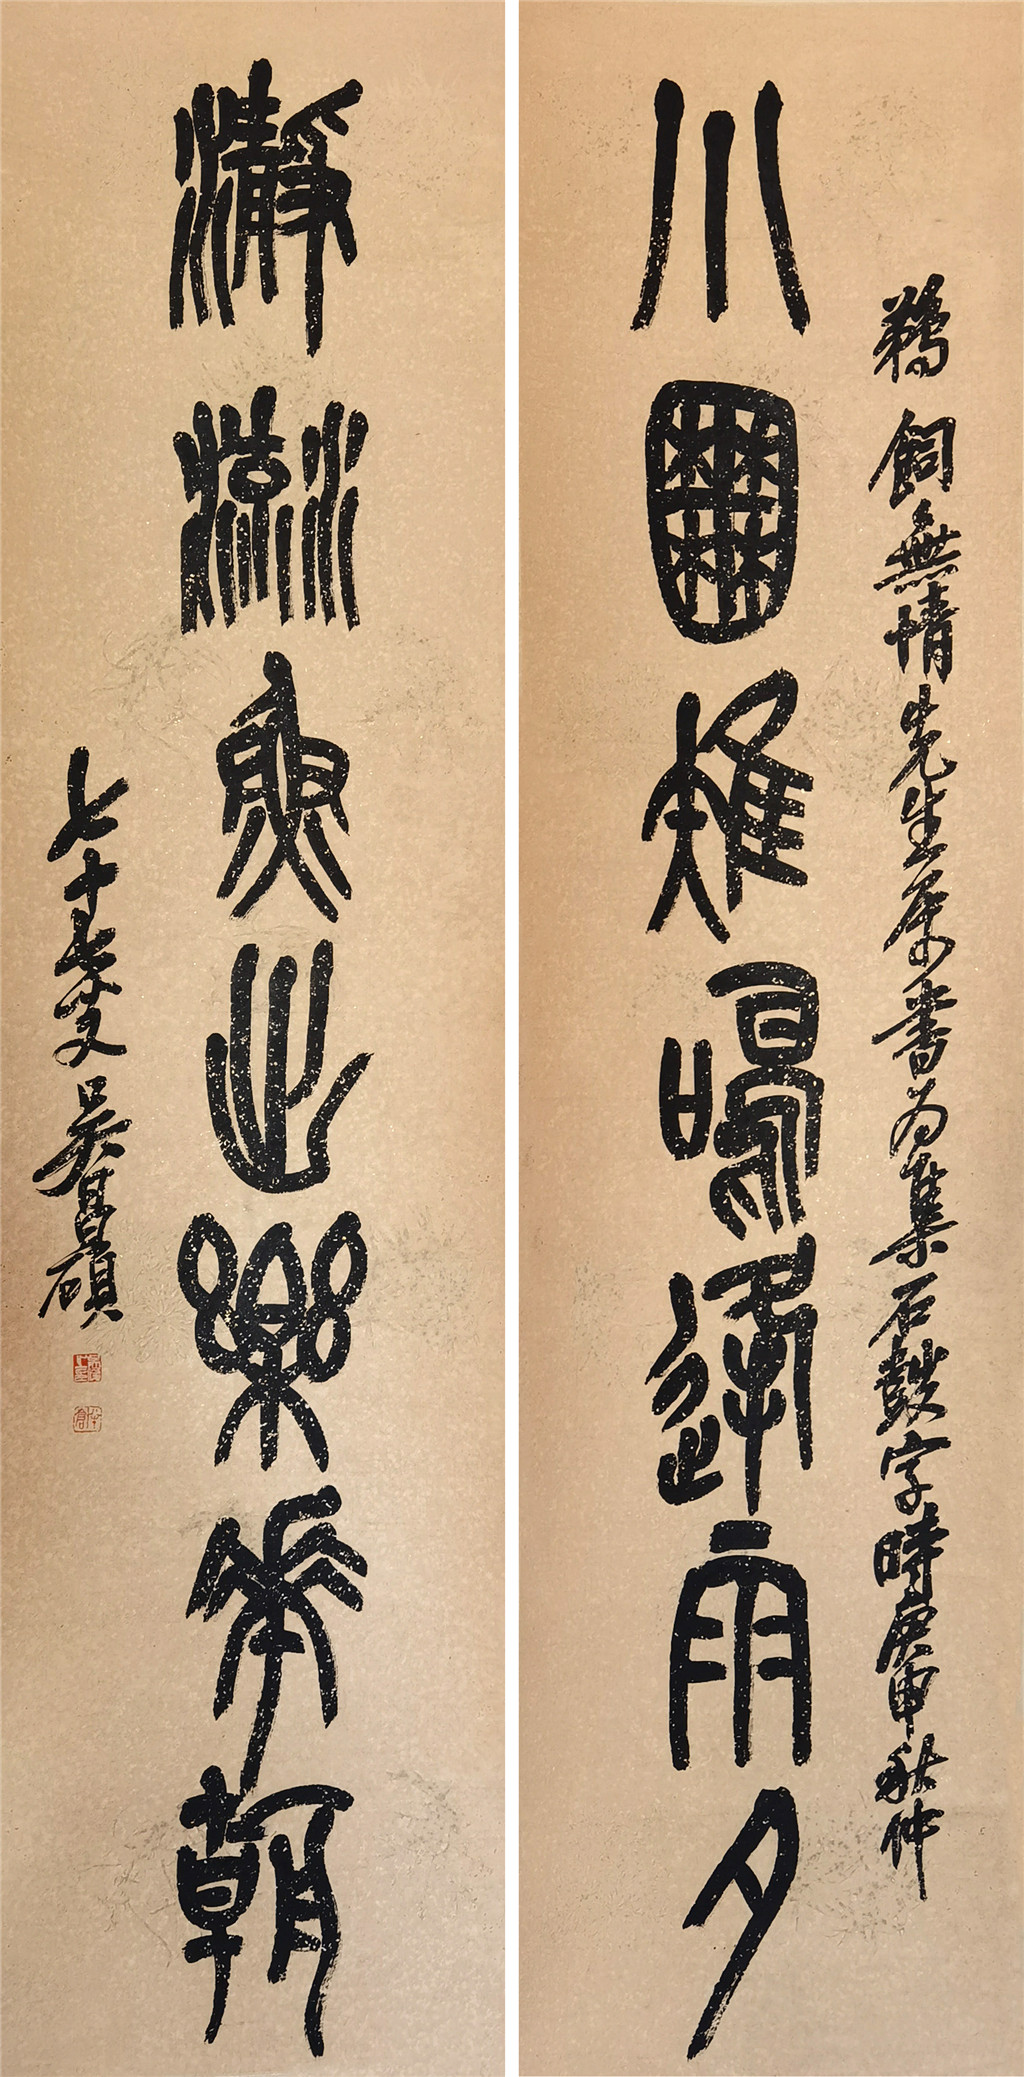 川囿雉鳴逢雨夕
鵜飼無情先生屬書為集石鼓字時庚申秋仲
瀞流魚出樂華朝
七十七叟吳昌碩